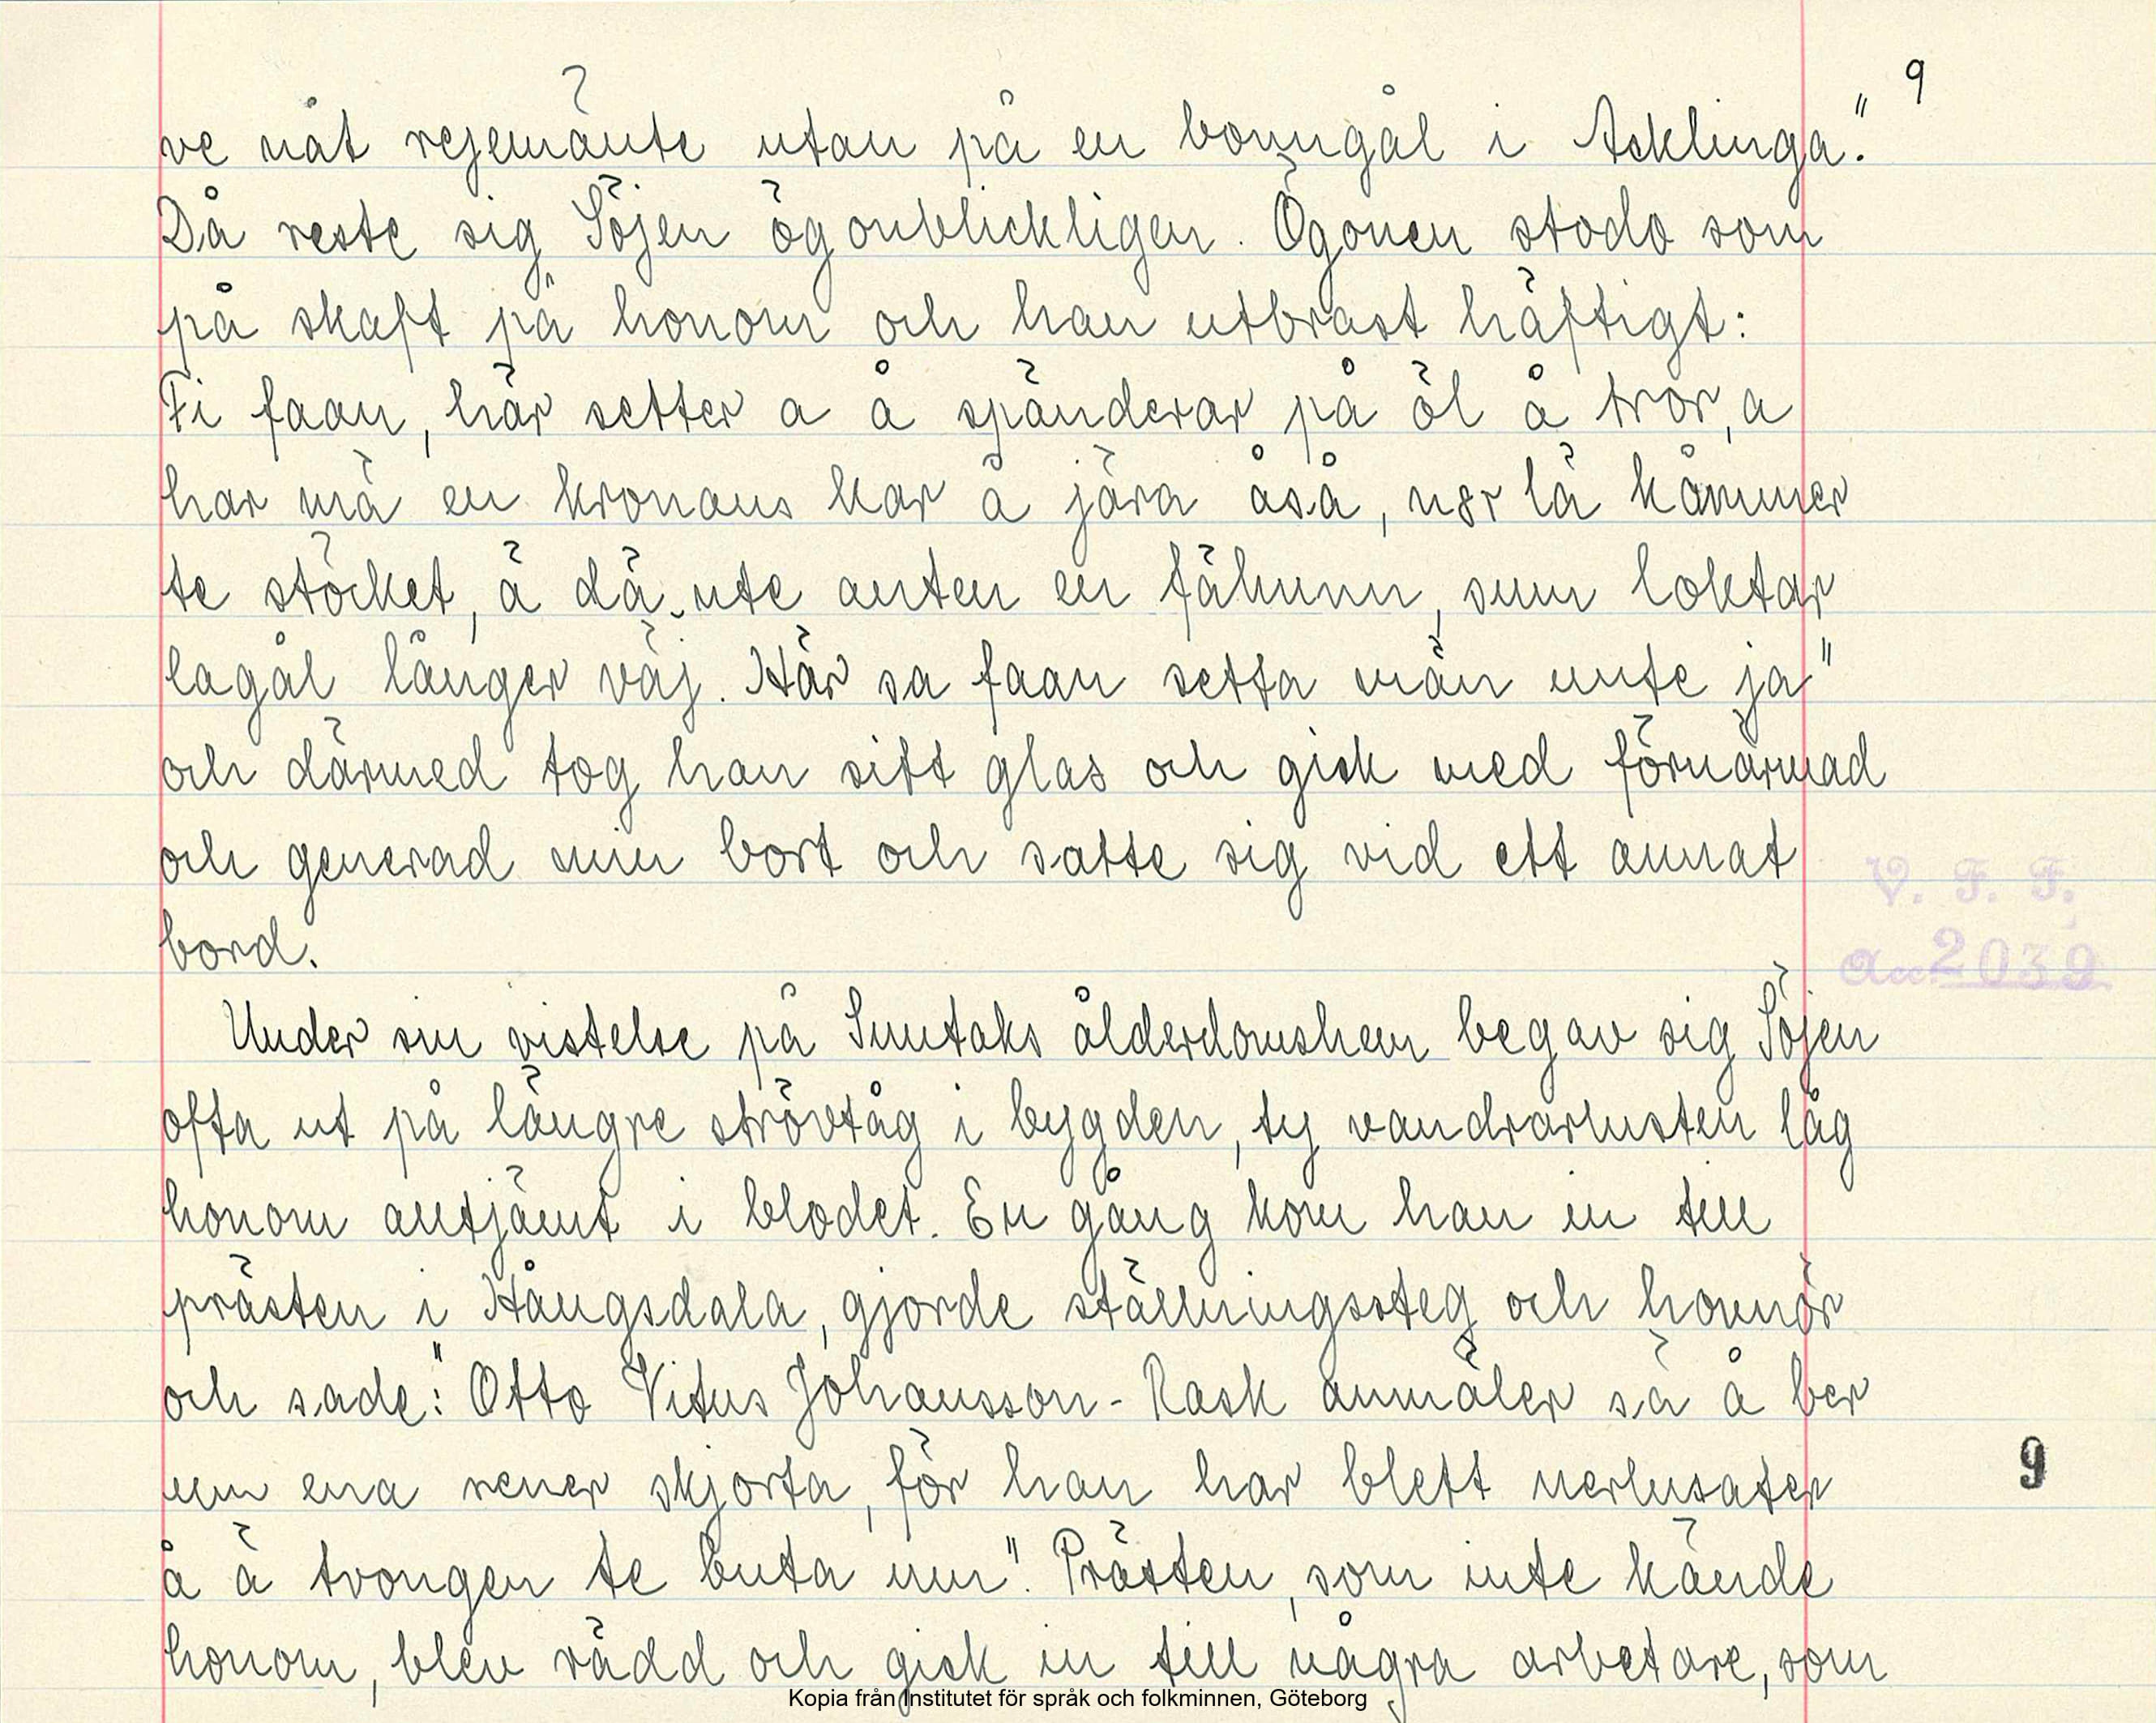 9
ve nåt rejemänte utan på en bonngål i Acklinga."
Då reste sig Söjen ögonblickligen. Ögonen stodo som
på skaft på honom och han utbrast häftigt:
Fi faan, här setter a å spänderar på öl å tror, a
har mä en kronans kar å jära åså, nör lä kåmmer
te stöcket, ä dä nte anten en fähunn, sum loktar
lagål långer väj. Här sa faan setta män unte ja"
och därmed tog han sitt glas och gick med förnärmad
och generad min bort och satte sig vid ett annat
bord.
V. F. F.
Acc. 2039
Under sin vistelse på Suntaks ålderdomshem begav sig Söjen
ofta ut på längre strövtåg i bygden, ty vandrarlusten låg
honom alltjämt i blodet. En gång kom han in till
prästen i Hångsdala, gjorde ställningssteg och honnör
och sade: "Otto Vitus Johansson-Rask anmäler sä å ber
um ena rener skjorta, för han har blett nerlusater
å ä tvongen te buta um". Prästen, som inte kände
9
honom, blev rädd och gick in till några arbetare, som
Kopia från Institutet för språk och folkminnen, Göteborg